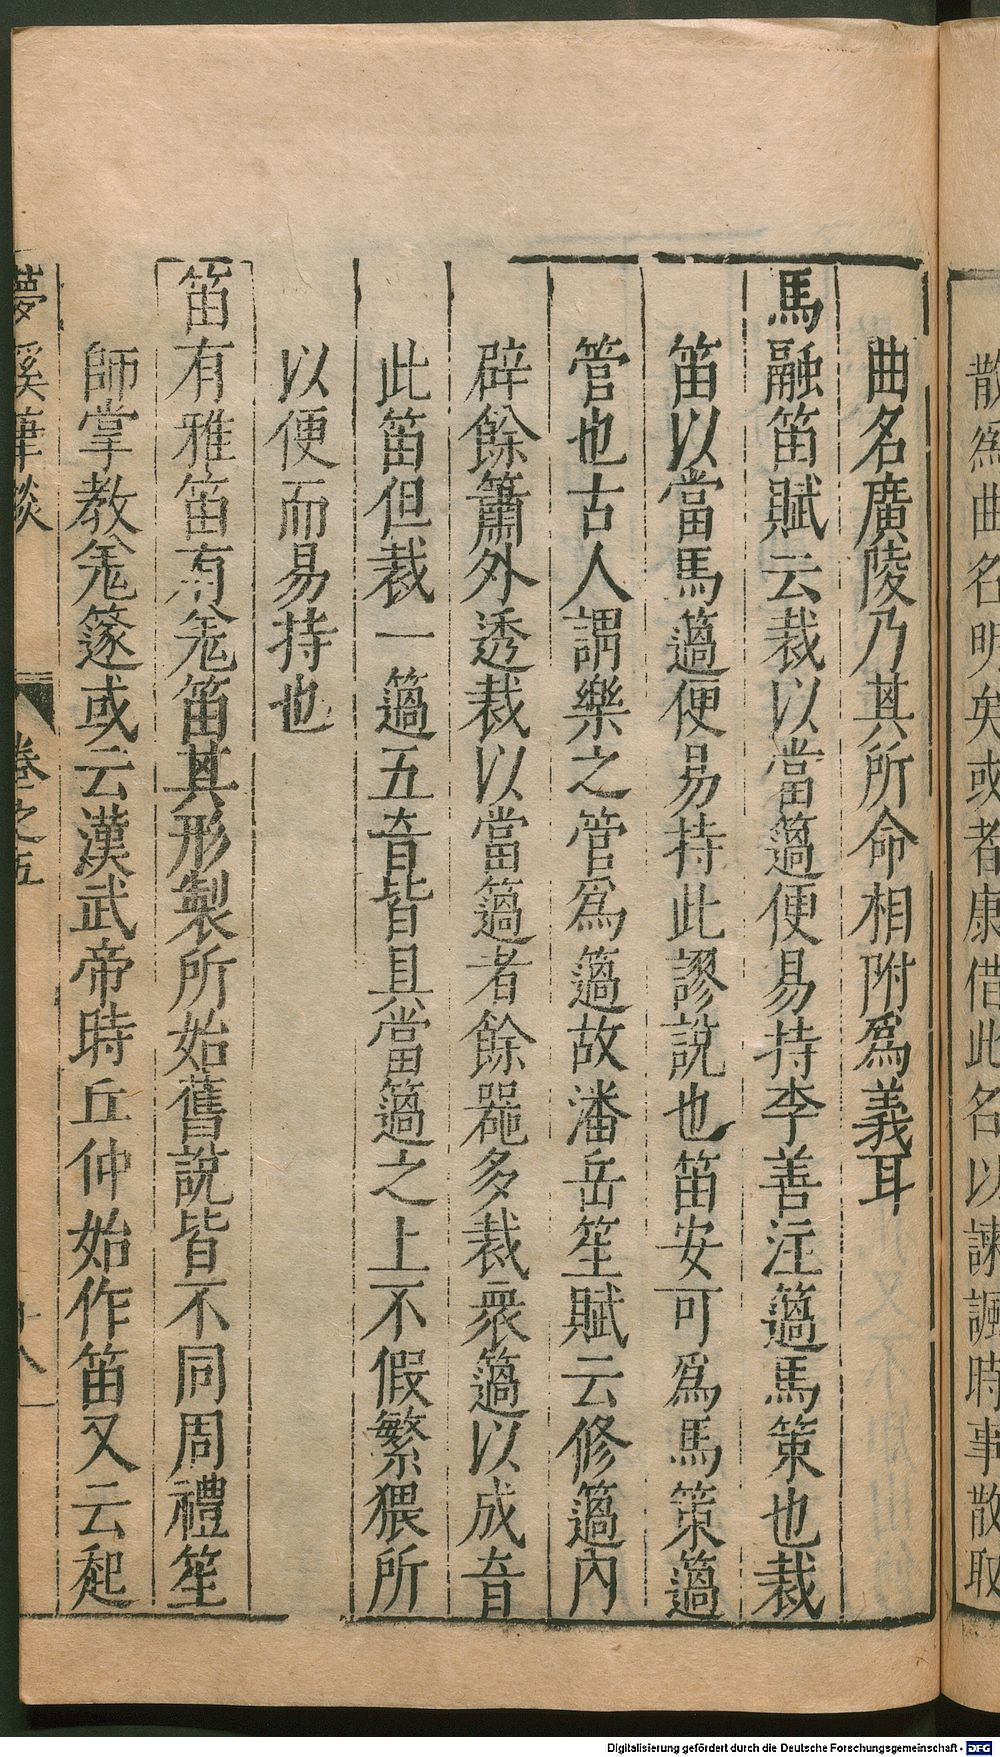 散爲曲名明矣或者康借此名以諫諷時事散取
曲名廣陵乃其所命相附爲義耳
馬融笛賦云裁以當簻便易持李善注簻馬策也裁
笛以當馬簻便易持此謬說也笛安可爲馬策簻
管也古人謂樂之管爲簻故潘岳笙賦云修簻內
辟餘簫外透裁以當簻者餘噐多裁衆簻以成音
此笛但裁一簻五音皆具當簻之上不假繁猥所
以便而易持也
笛有雅笛有羗笛其形製所始舊說皆不同周禮笙
師掌教箎篴或云漢武帝時丘仲始作笛又云起
夢溪筆談
卷之五
十八
Digitalisierung gefördert durch die Deutsche Forschungsgemeinschaft - DFG